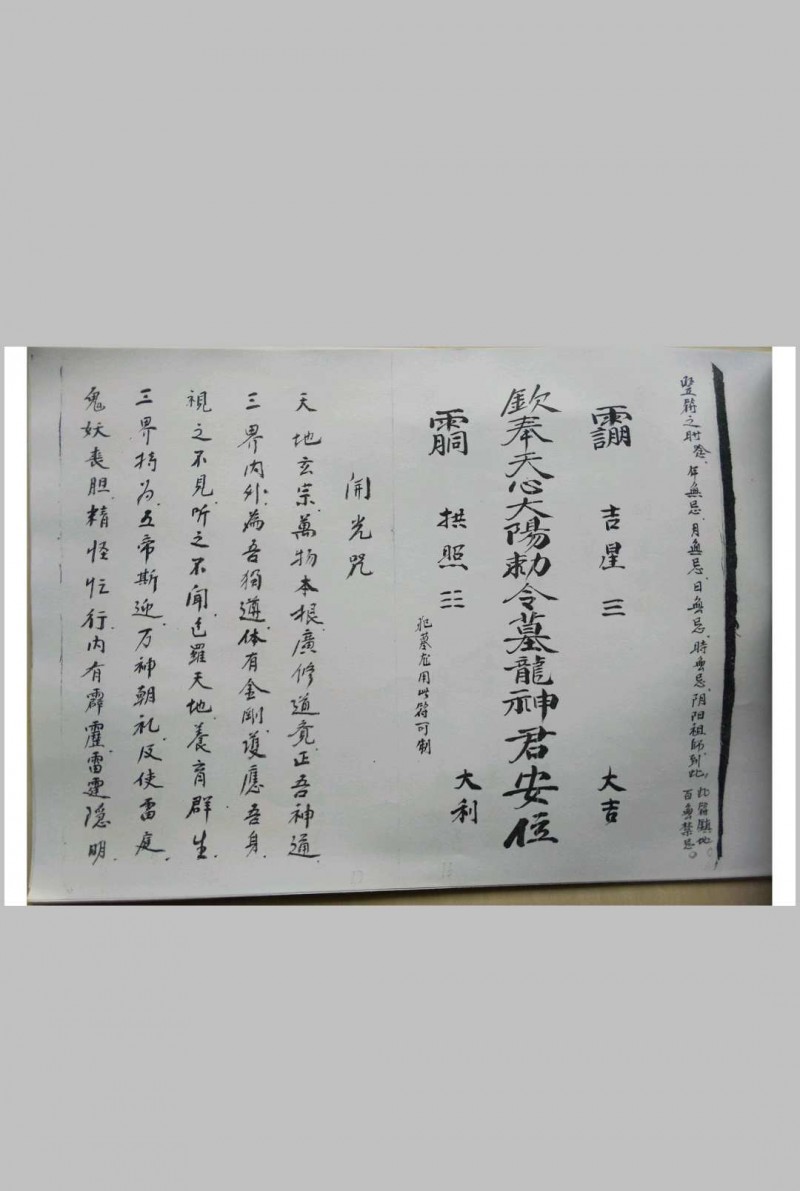 竪符之时念，年無忌，月無忌，日無忌，時無忌，阴阳祖師到此，此符鎮地
百無禁忌。
吉星 三 大吉
欽奉天心太陽勅令墓龍神君安位
拱照 大利
犯墓龙用此符可制
開光咒
天地玄宗，萬物本根，廣修道竟，正吾神通，
三界内外，為吾獨遵，体有金剛，護應吾身，
視之不見，听之不闻，包羅天地，養育群生，
三界持为，五帝斯迎，万神朝礼，反使雷庭，
鬼妖丧胆，精怪忙行，内有霹靂，雷霆隐明，